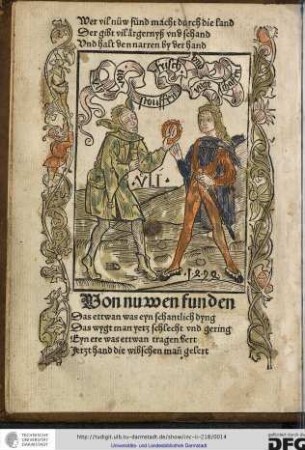 Wer vil nüw fünd macht durch die land
Der gibt vil ärgernyß vnd schand
Vnd halt den narren by der hand
von
frisch
vnd
.VII.
.1.4.9.4.
Von nuwen funden
Das ettwan was eyn schantlich dyng
Das wygt man yetz schlecht vnd gering
Eyn ere was ettwan tragen bert
Jetzt hand die wibschen man gelert
TECHNISCHE
UNIVERSITÄT
DARMSTADT
http://tudigit.ulb.tu-darmstadt.de/show/inc-iv-218/0014
Universitäts- und Landesbibliothek Darmstadt
gefördert durch die
DFG